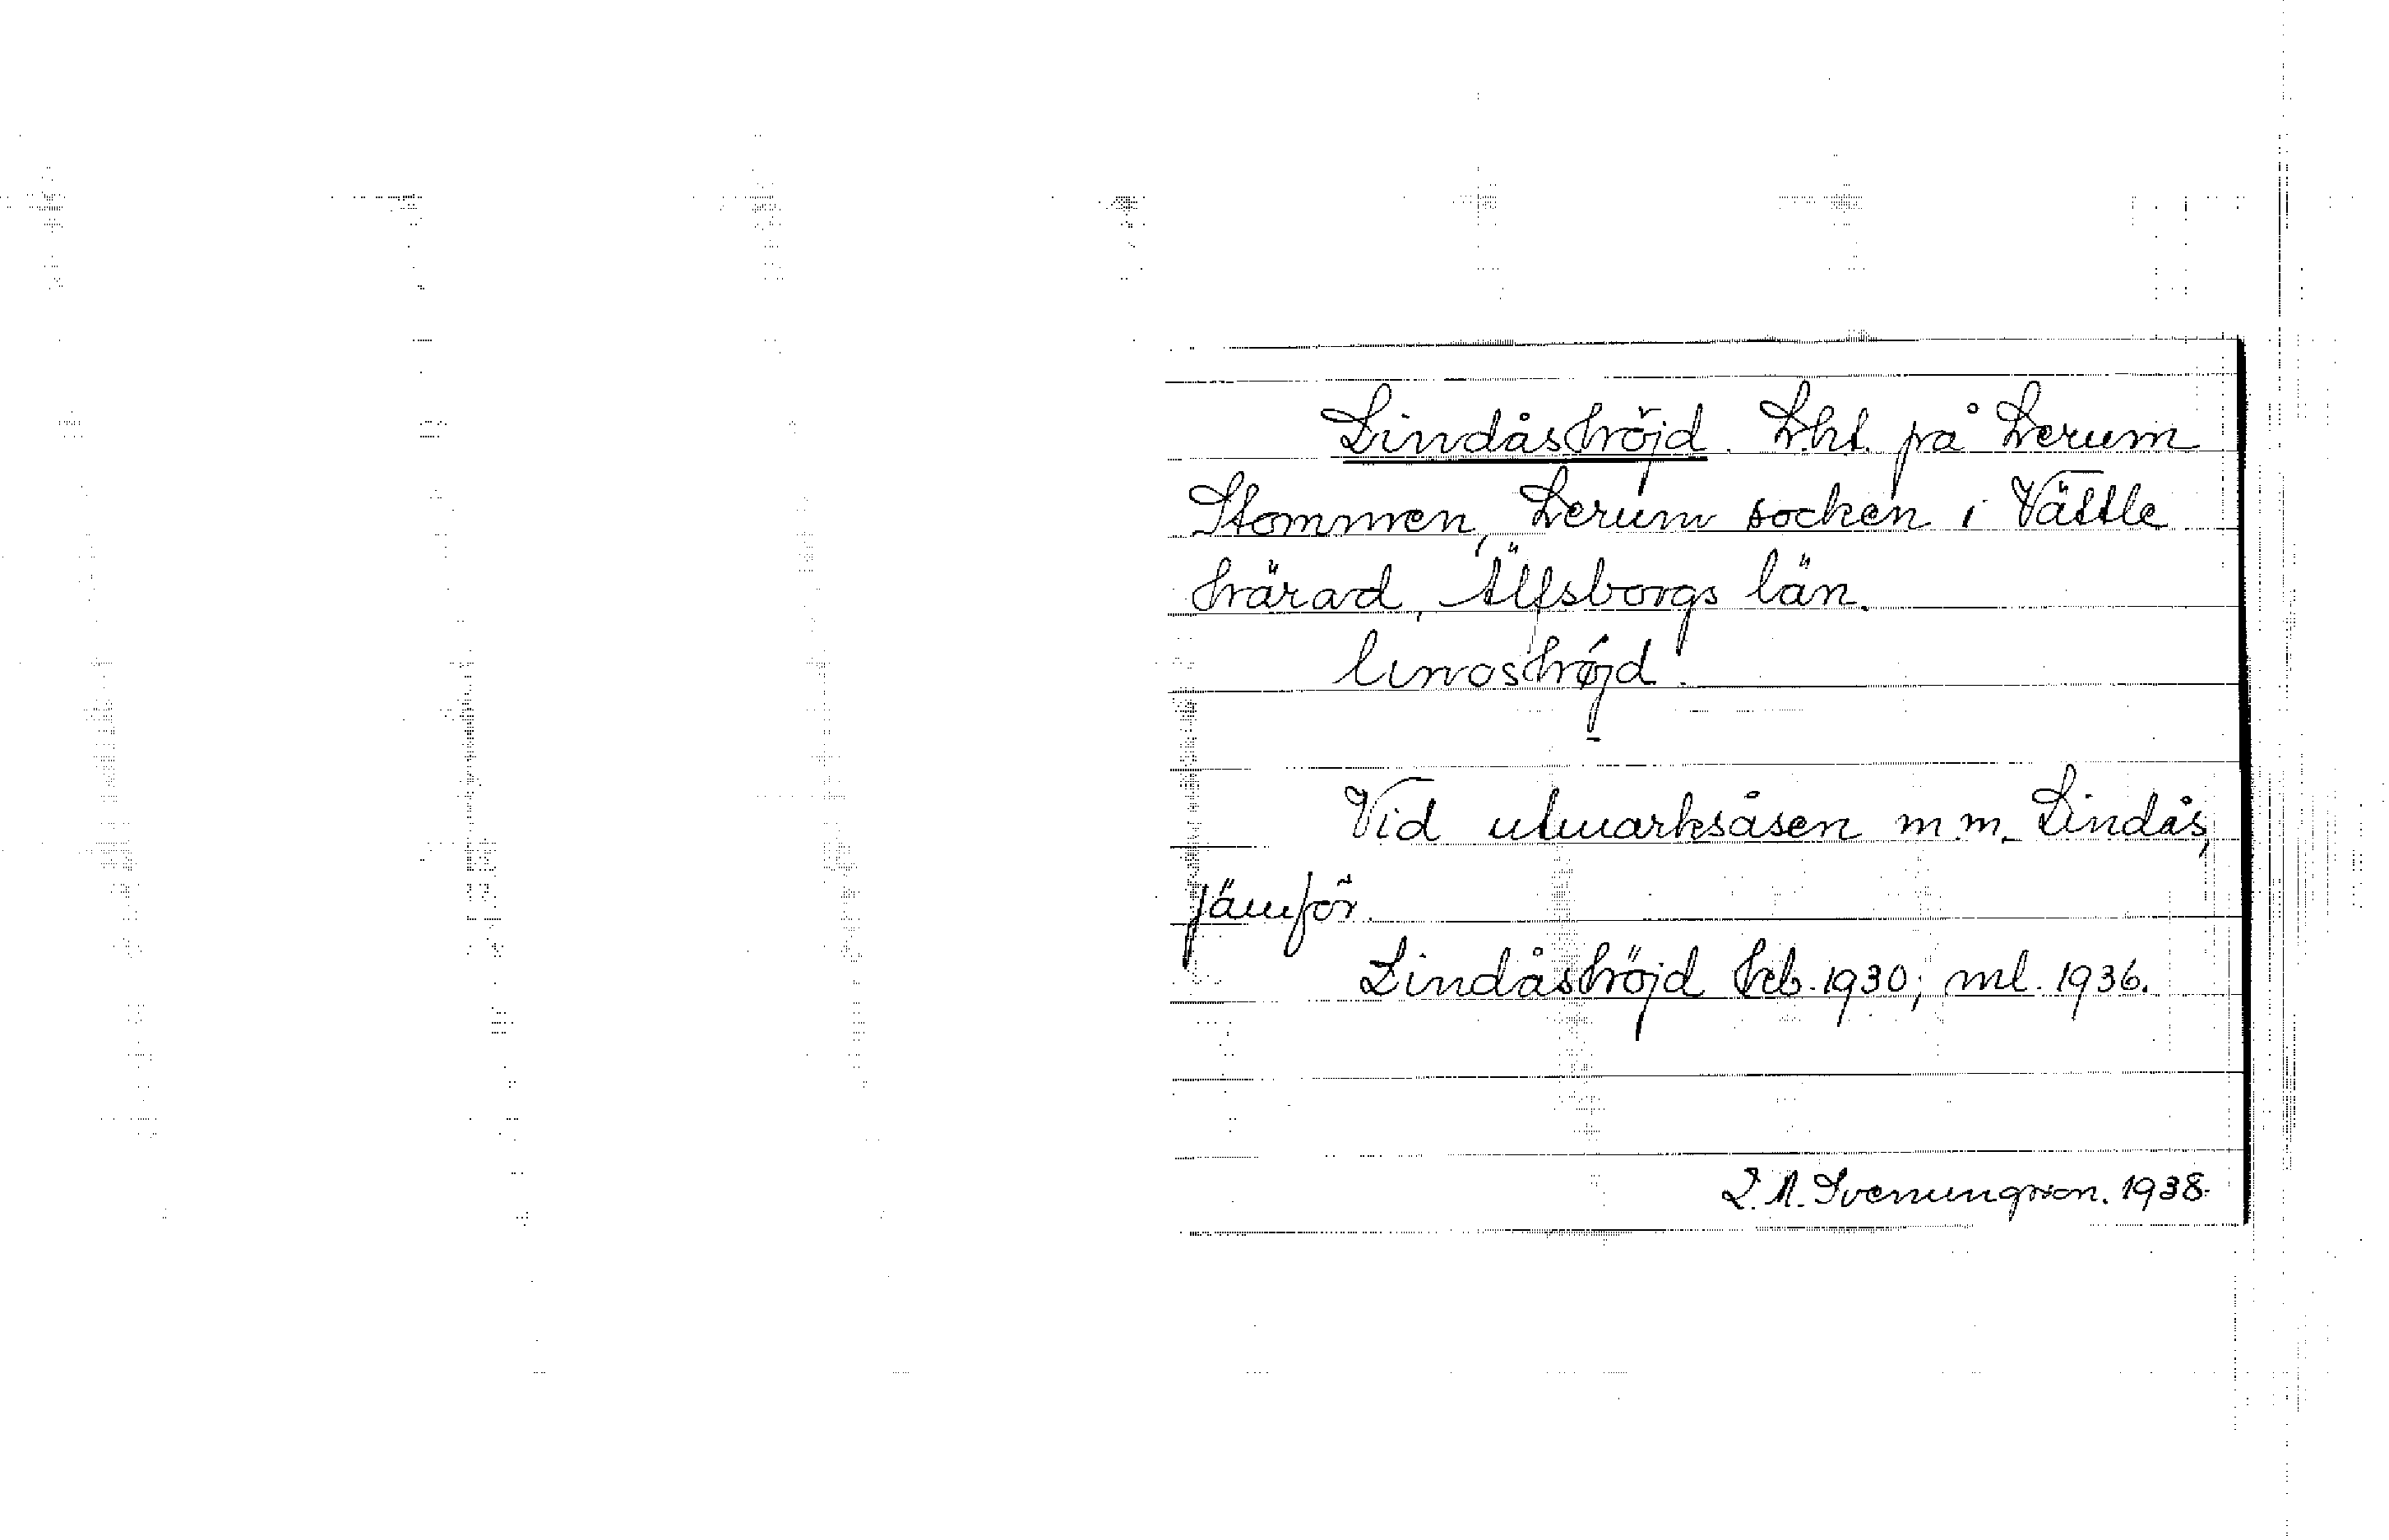 Lindåshöjd. Lht. på Lerum
Stommen, Lerum socken i Vättle
härad, Älfsborgs län.
linoshøjd.
Vid utmarksåsen m.m. Lindås,
jämför.
Lindåshöjd hcb. 1930; ml. 1936.
L. A. Svenungsson. 1938.